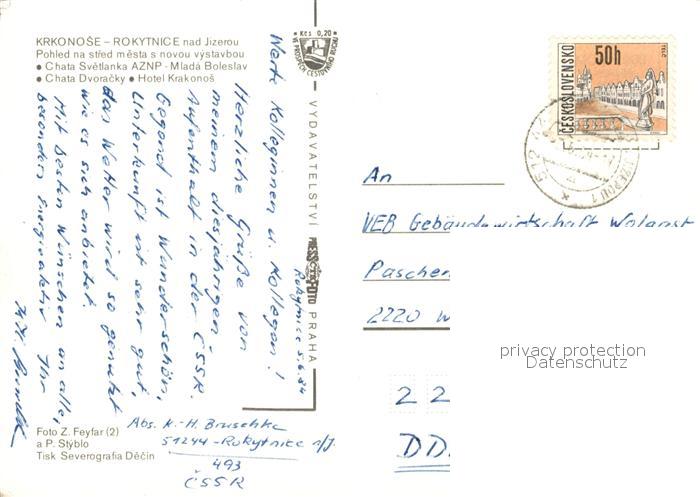 KRKONOŠE – ROKYTNICE nad Jizerou
Pohled na střed města s novou výstavbou
● Chata Světlanka AZNP - Mladá Boleslav
● Chata Dvoračky ● Hotel Krakonoš
Kčs 0,20
VE PROSPĚCH CESTOVNÍHO RUCHU
VYDAVATELSTVÍ PRESSFOTO PRAHA
Rokytnice 5.6.84
Werte Kolleginnen u. Kollegen!
Herzliche Grüße von
meinem diesjährigen
Aufenthalt in der ČSSR.
Gegend ist Wunderschön,
Unterkunft ist sehr gut,
das Wetter wird so genutzt
wie es sich anbietet.
Mit besten Wünschen an alle,
besonders Energieaktiv Ihr
K.H. Bruschke
Foto Z. Feyfar (2)
a P. Stýblo
Tisk Severografia Děčín
Abs. K.-H. Bruschke
51244 - Rokytnice n/J.
493
ČSSR
ČESKOSLOVENSKO
50h
TELČ
512
An
VEB Gebäudewirtschaft Wolgast
Paschen
2220 W
privacy protection
Datenschutz
22
DD